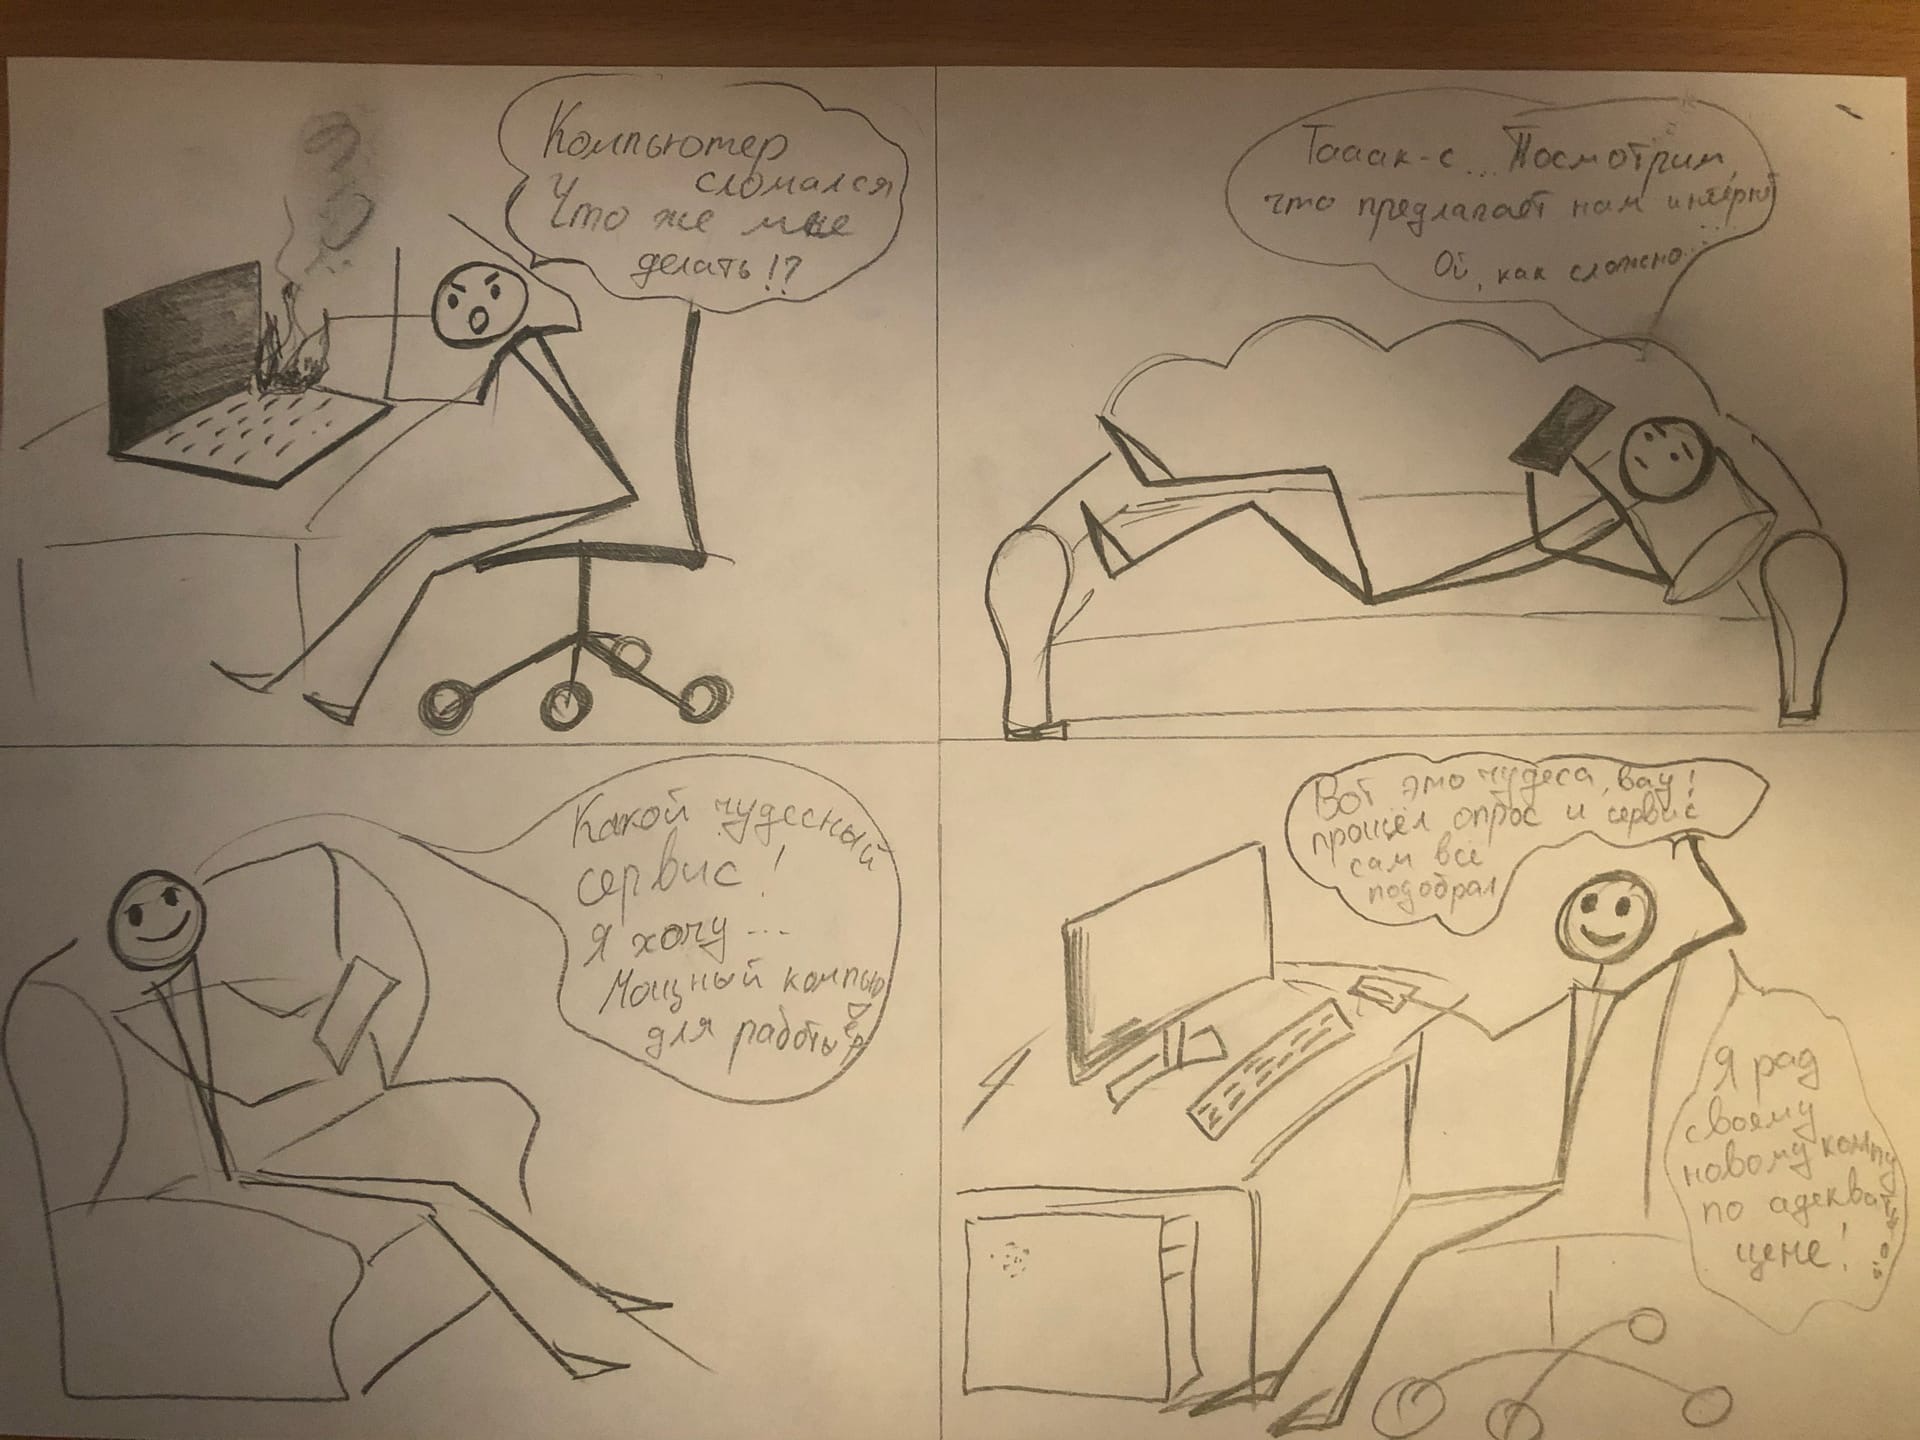 Компьютер
сломался
Что же мне
делать!?
Тааак-с... Посмотрим,
что предлагает нам интернет
Ой, как сложно...
Какой чудесный
сервис!
Я хочу...
Мощный компьютер
для работы
Вот это чудеса, вау!
прошёл опрос и сервис
сам всё
подобрал
Я рад
своему
новому
по адекватн...
цене!